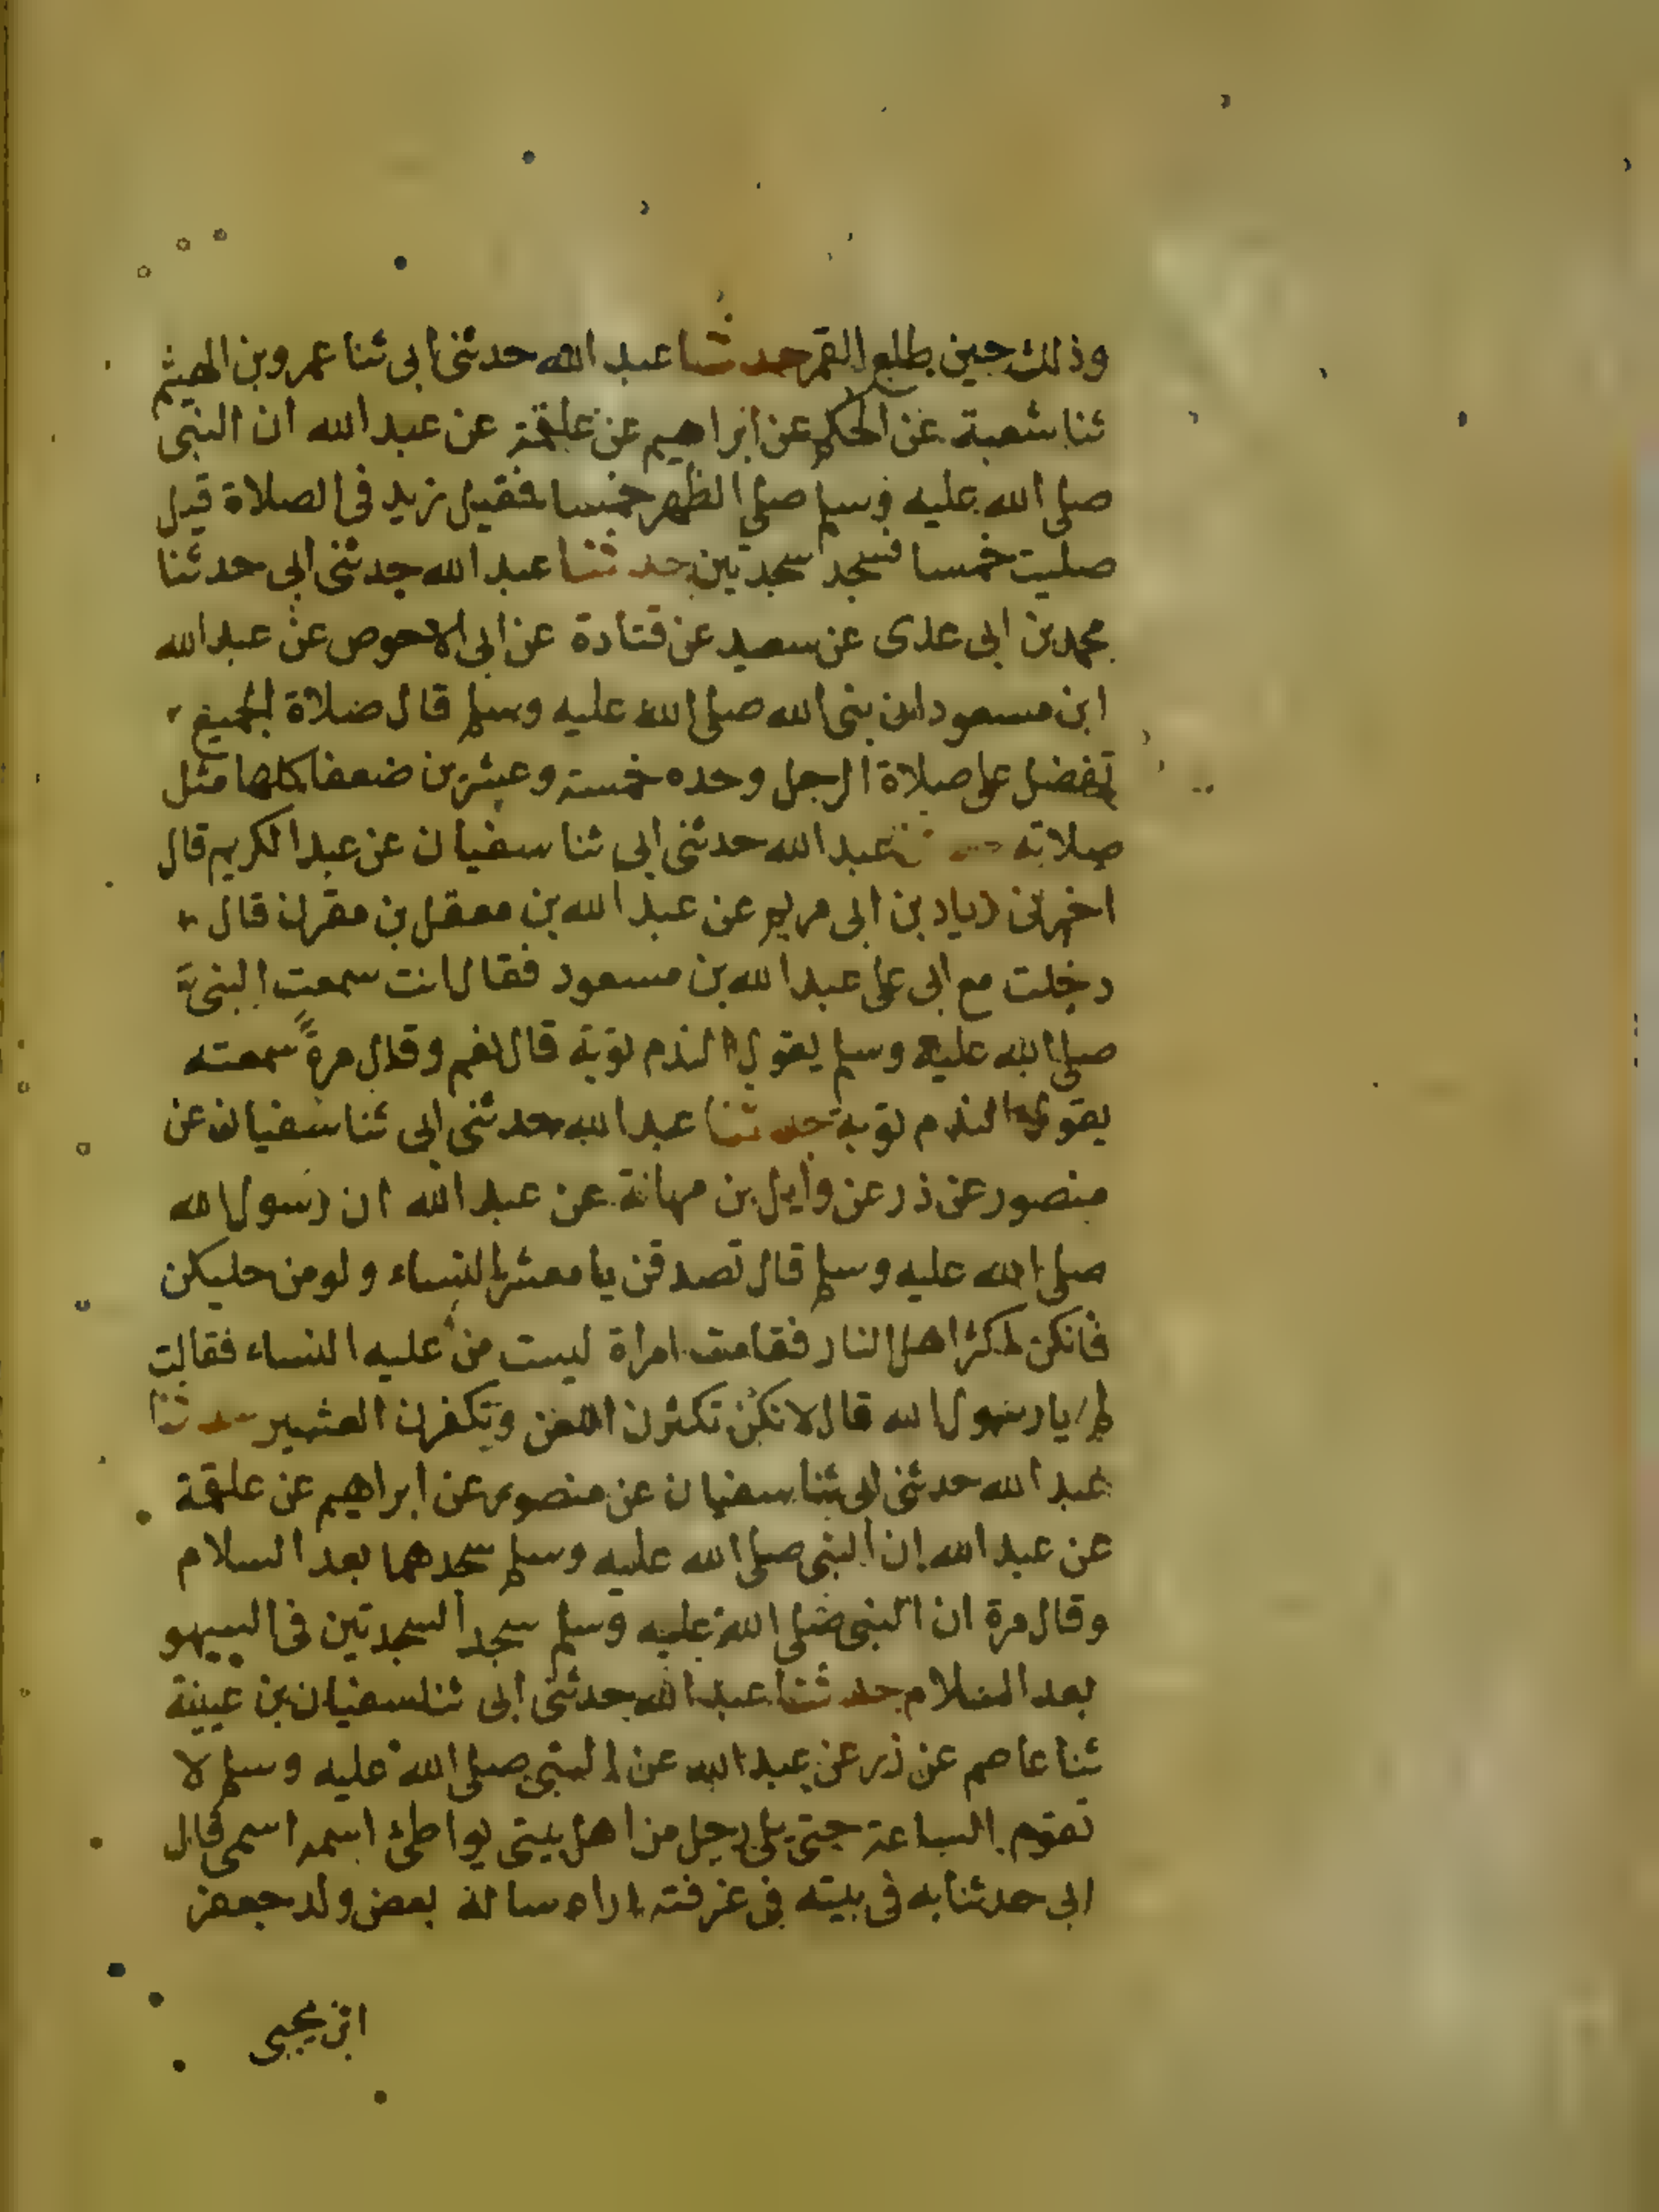 وذلك حين يطلع القمر حدثنا عبد الله حدثني ابي ثنا عمرو بن الهيثم
ثنا شعبة عن الحكم عن ابراهيم عن علقمة عن عبد الله ان النبي
صلى الله عليه وسلم صلى الظهر خمسا فقيل زيد في الصلاة قيل
صليت خمسا فسجد سجدتين حدثنا عبد الله حدثني ابي حدثنا
محمد بن ابي عدى عن سعيد عن قتادة عن ابي الاحوص عن عبد الله
ابن مسعود ان نبي الله صلى الله عليه وسلم قال صلاة الجميع
تفضل على صلاة الرجل وحده خمسة وعشرين ضعفا كلها مثل
صلاته حدثنا عبد الله حدثني ابي ثنا سفيان عن عبد الكريم قال
اخبرني زياد بن ابي مريم عن عبد الله بن معقل بن مقرن قال
دخلت مع ابي على عبد الله بن مسعود فقال انت سمعت النبي
صلى الله عليه وسلم يقول الندم توبة قال نعم وقال مرة سمعته
يقول الندم توبة حدثنا عبد الله حدثني ابي ثنا سفيان عن
منصور عن ذر عن وايل بن مهانة عن عبد الله ان رسول الله
صلى الله عليه وسلم قال تصدقن يا معشر النساء ولو من حليكن
فانكن اكثر اهل النار فقامت امراة ليست من علية النساء فقالت
لم يا رسول الله قال لانكن تكثرن اللعن وتكفرن العشير حدثنا
عبد الله حدثني ابي ثنا سفيان عن منصور عن ابراهيم عن علقمة
عن عبد الله ان النبي صلى الله عليه وسلم سجدهما بعد السلام
وقال مرة ان النبي صلى الله عليه وسلم سجد السجدتين في السهو
بعد السلام حدثنا عبد الله حدثني ابي ثنا سفيان بن عيينة
ثنا عاصم عن زر عن عبد الله عن النبي صلى الله عليه وسلم لا
تقوم الساعة حتى يلي رجل من اهل بيتي يواطئ اسمه اسمي قال
ابي حدثنا به في بيته في غرفته اراه ساله بعض ولد جعفر
ابن يحيى